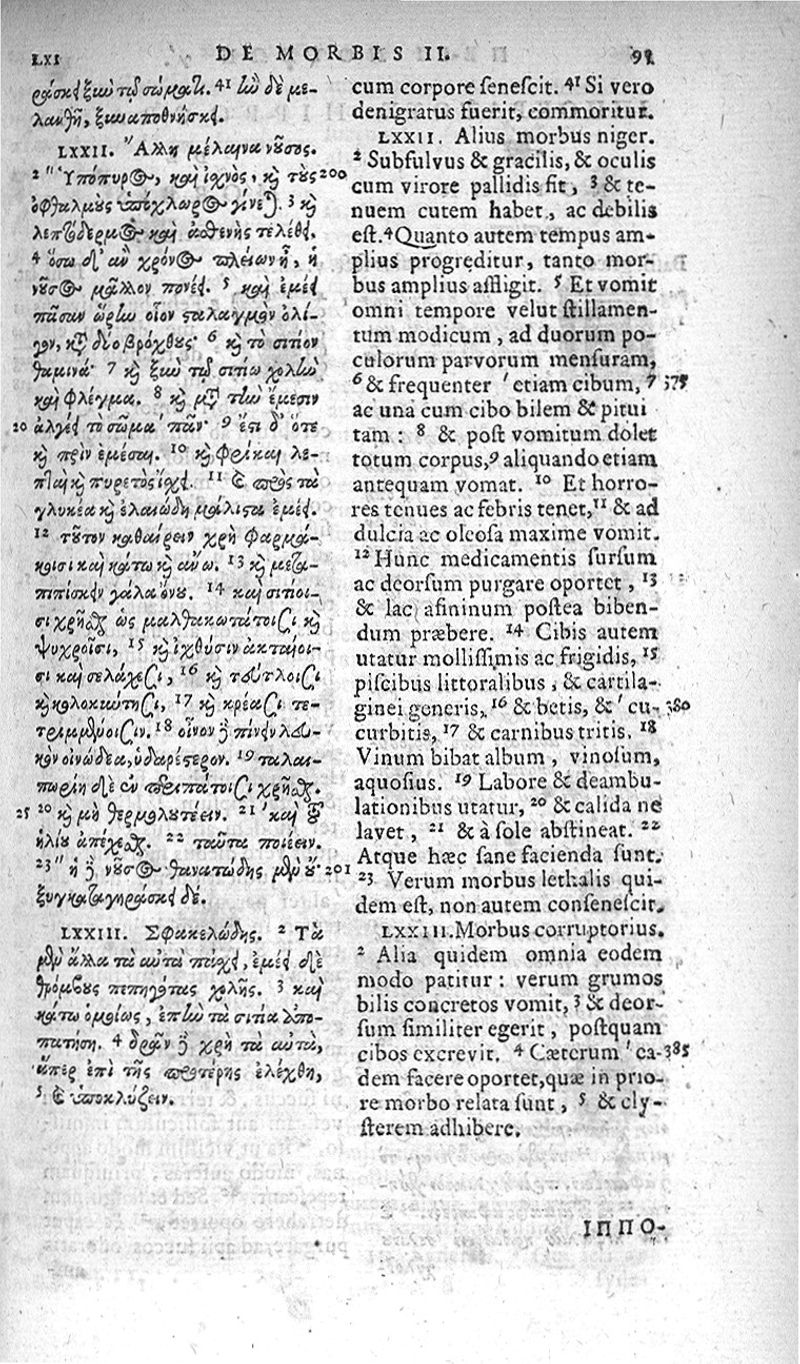 LXI DE MORBIS II. 91
ράσκει ξὺν τῷ σώματι. 41 ἢν δὲ με-
λανθῇ, ξυναποθνήσκει.
LXXII. Ἄλλη μέλαινα νοῦσος.
2 " Ὑπόπυρρος, καὶ ἰχνὸς, καὶ τοὺς 200
ὀφθαλμοὺς ὑπόχλωρος γίνεται. 3 καὶ
λεπτόδερμος καὶ ἀσθενὴς τελέθει.
4 ὅσῳ δ' ἂν χρόνος πλείων ᾖ, ἡ
νοῦσος μᾶλλον πονέει. 5 καὶ ἐμέει
πᾶσαν ὥρην οἷον σταλαγμὸν ὀλί-
γον, κατὰ δύο βρόχθους· 6 καὶ τὸ σιτίον
θαμινά· 7 καὶ ξὺν τῷ σιτίῳ χολὴν
καὶ φλέγμα. 8 καὶ μετὰ τὴν ἔμεσιν
20 ἀλγέει τὸ σῶμα ' πᾶν· 9 ἔστι δ' ὅτε
καὶ πρὶν ἐμέσαι. 10 καὶ φρίκαι λε-
πταὶ καὶ πυρετὸς ἴσχει. 11 καὶ πρὸς τὰ
γλυκέα καὶ ἐλαιώδη μάλιστα ἐμέει.
12 τοῦτον καθαίρειν χρὴ φαρμά-
κοισι καὶ κάτω καὶ ἄνω. 13 καὶ μετα-
πιπίσκειν γάλα ὄνου. 14 καὶ σιτίοι-
σι χρῆσθαι ὡς μαλθακωτάτοισι καὶ
ψυχροῖσι, 15 καὶ ἰχθύσιν ἀκταίοι-
σι καὶ σελάχεσι, 16 καὶ τεύτλοισι
καὶ κολοκύντῃσι, 17 καὶ κρέασι τε-
τριμμένοισιν. 18 οἶνον δὲ πίνειν λευ-
κὸν οἰνώδεα, ὑδαρέστερον. 19 ταλαι-
πωρίῃ δὲ ἐν περιπάτοισι χρῆσθαι.
25 20 καὶ μὴ θερμολουτέειν. 21 ' καὶ τοῦ
ἡλίου ἀπέχεσθαι. 22 ταῦτα ποιέειν.
23 " ἡ δὲ νοῦσος θανατώδης μὲν οὔ· 201
ξυγκαταγηράσκει δέ.
LXXIII. Σφακελώδης. 2 Τὰ
μὲν ἄλλα τὰ αὐτὰ πάσχει, ἐμέει δὲ
θρόμβους πεπηγότας χολῆς. 3 καὶ
κάτω ὁμοίως, ἐπὴν τὰ σιτία ἀπο-
πατήσῃ. 4 δρᾶν δὲ χρὴ τὰ αὐτὰ,
ἅπερ ἐπὶ τῆς προτέρης ἐλέχθη,
5 καὶ ὑποκλύζειν.
cum corpore senescit. 41 Si vero
denigratus fuerit, commoritur.
LXXII. Alius morbus niger.
2 Subfulvus & gracilis, & oculis
cum virore pallidis fit, 3 & te-
nuem cutem habet, ac debilis
est. 4 Quanto autem tempus am-
plius progreditur, tanto mor-
bus amplius affligit. 5 Et vomit
omni tempore velut stillamen-
tum modicum, ad duorum po-
culorum parvorum mensuram,
6 & frequenter ' etiam cibum, 7 375
ac una cum cibo bilem & pitui
tam : 8 & post vomitum dolet
totum corpus, 9 aliquando etiam
antequam vomat. 10 Et horro-
res tenues ac febris tenet, 11 & ad
dulcia ac oleosa maxime vomit.
12 Hunc medicamentis sursum
ac deorsum purgare oportet, 13
& lac asininum postea biben-
dum præbere. 14 Cibis autem
utatur mollissimis ac frigidis, 15
piscibus littoralibus, & cartila-
ginei generis, 16 & betis, & ' cu- 380
curbitis, 17 & carnibus tritis. 18
Vinum bibat album, vinosum,
aquosius. 19 Labore & deambu-
lationibus utatur, 20 & calida ne
lavet, 21 & à sole abstineat. 22
Atque hæc sane facienda sunt.
23 Verum morbus lethalis qui-
dem est, non autem consenescit.
LXXIII. Morbus corruptorius.
2 Alia quidem omnia eodem
modo patitur : verum grumos
bilis concretos vomit, 3 & deor-
sum similiter egerit, postquam
cibos excrevit. 4 Cæterum ' ea- 385
dem facere oportet, quæ in prio-
re morbo relata sunt, 5 & cly-
sterem adhibere.
ΙΠΠΟ-